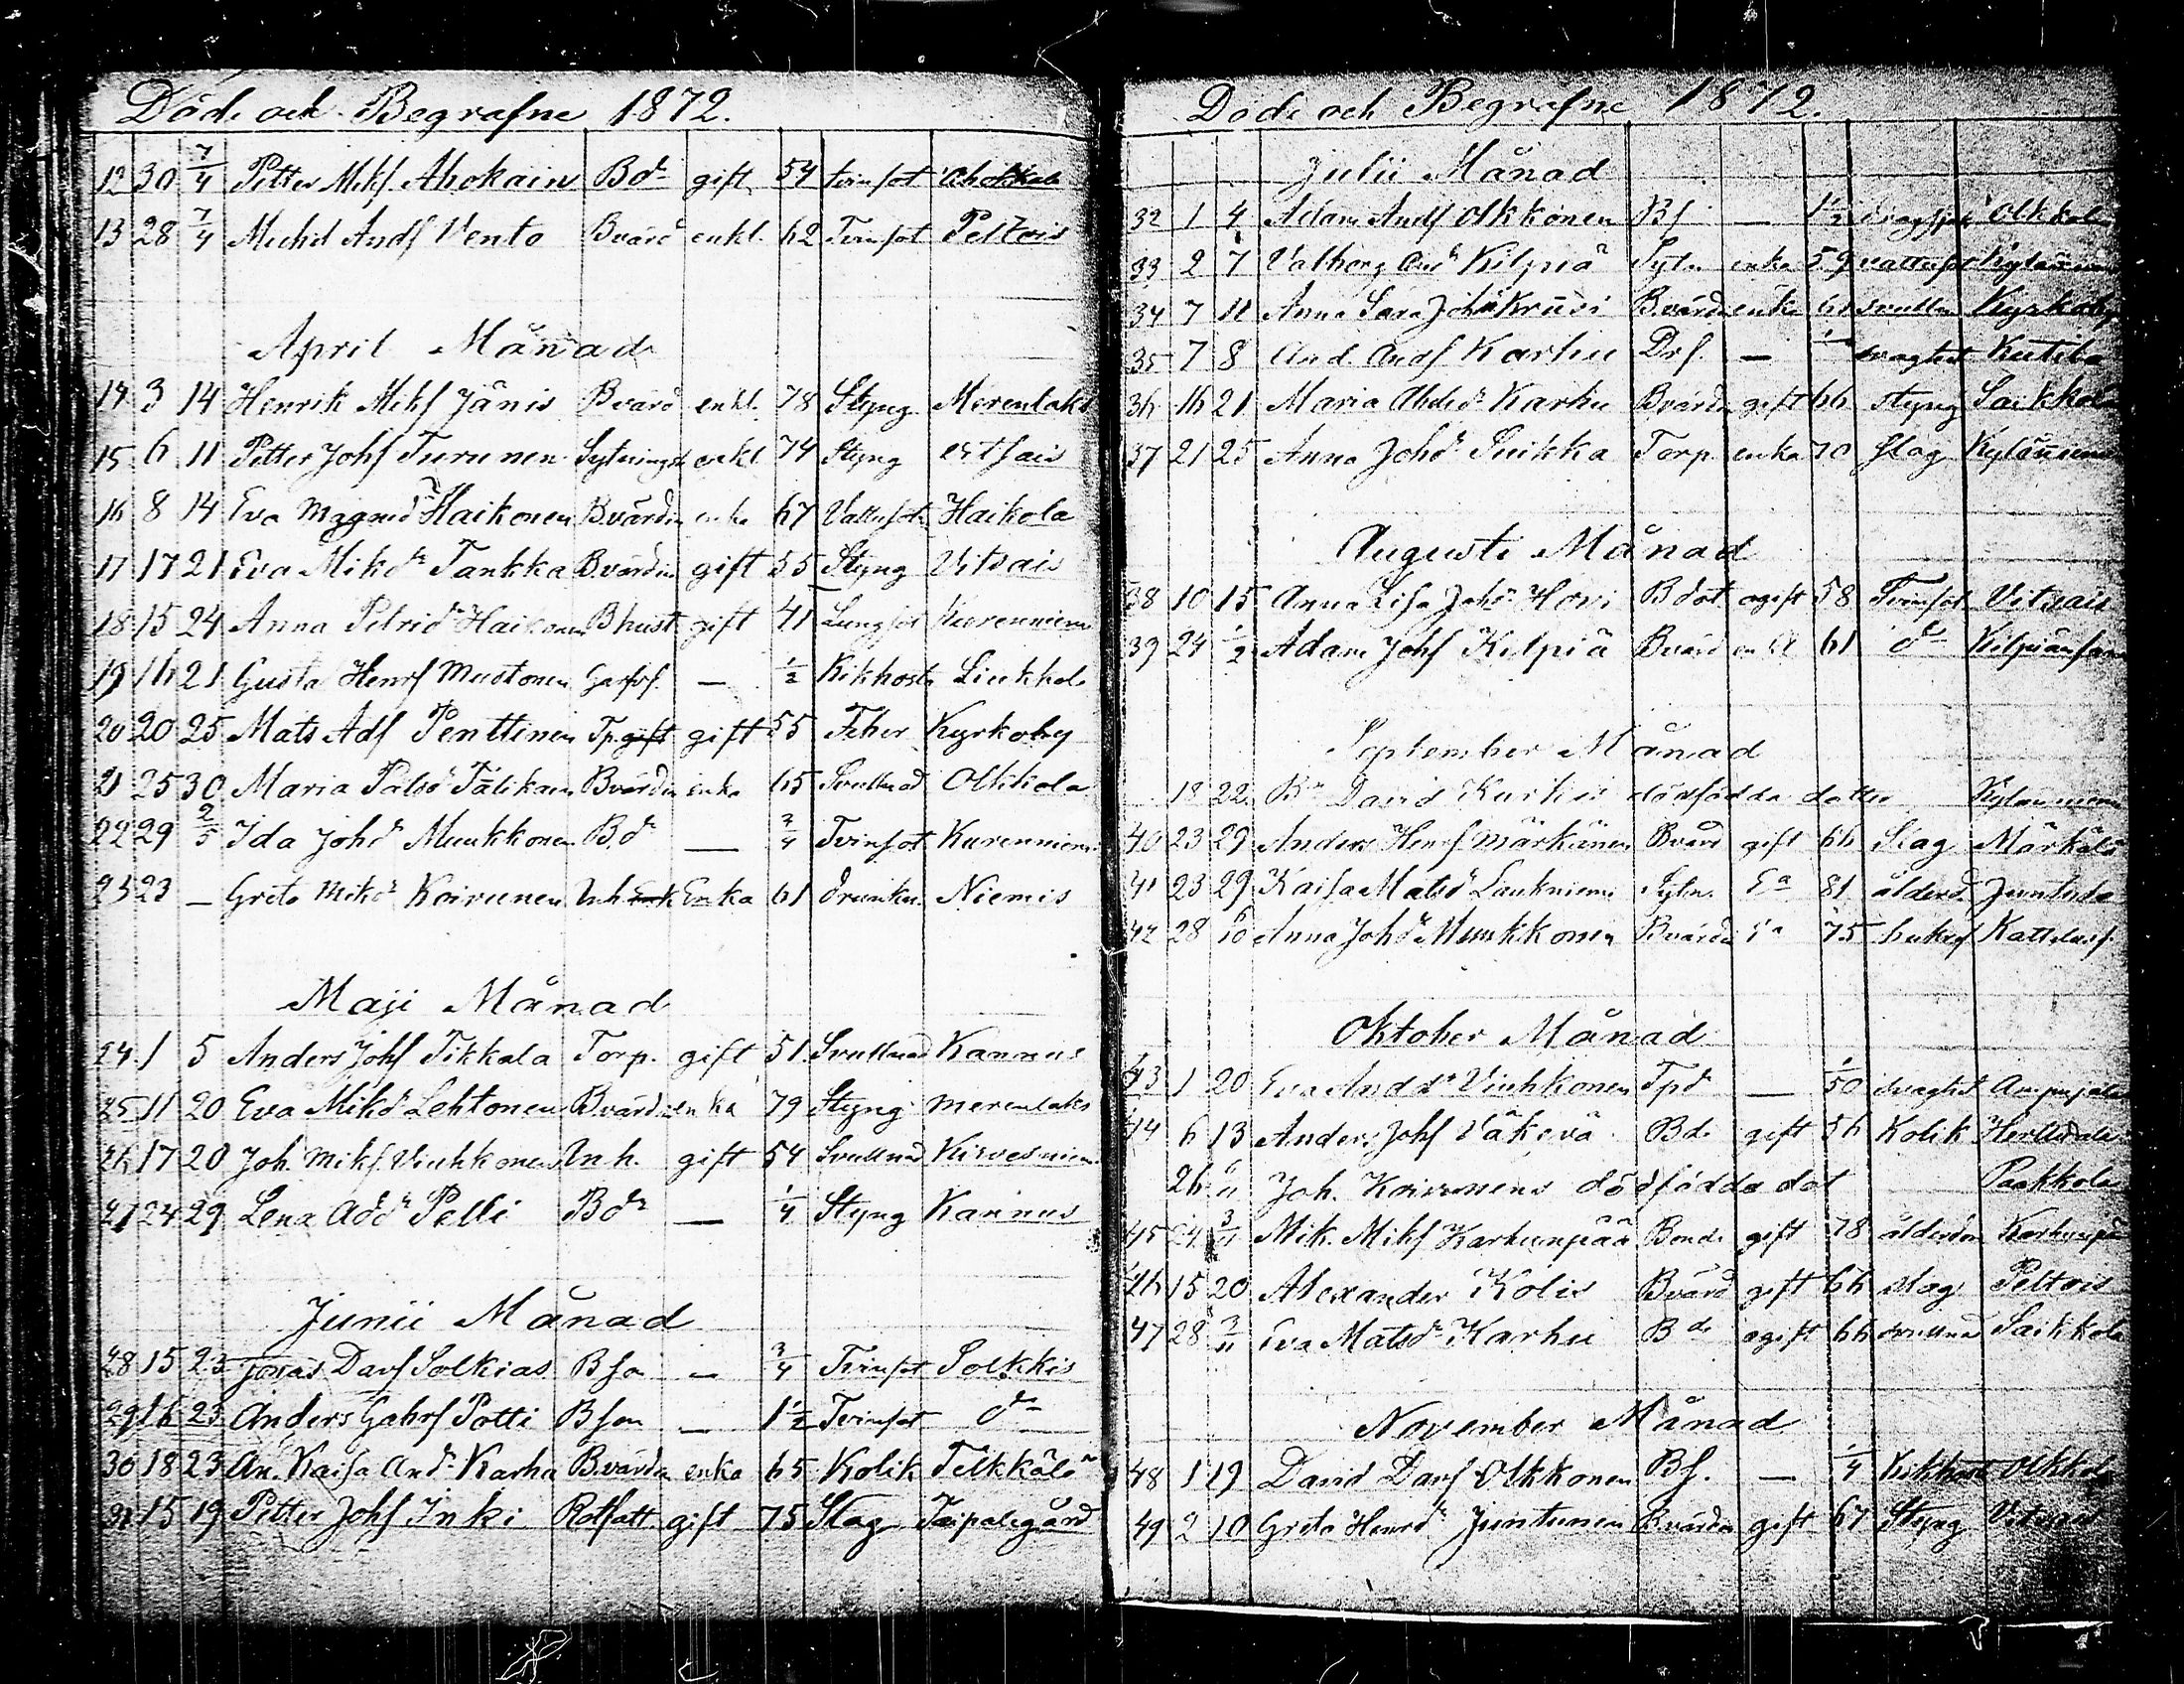 Döde och Begrafne 1872.
12 30 7/4 Petter Mikf Ahokain Bde gift 54 tvinsot Ahokkala
13 28 7/4 Michel Andf Vento Bvärd enkl. 62 Tvinsot Peltois
April Månad
14 3 14 Henrik Mikf Jänis Bvärd enkl. 78 Styng Merenlaks
15 6 11 Petter Johf Turunen Sytnings enkl. 74 Styng
16 8 14 Eva Magnusdr Haikonen Bvärdin enka 67 Vattusot Haikola
17 17 21 Eva Mikdr Tankka Bvärdin gift 55 Styng Vitsais
18 15 24 Anna Petridr Haikonen Bhust gift 41 Lungsot Kurenniemi
19 16 21 Gusta Henrf Mustonen — 1/2 Kikhosta Liukkola
20 20 25 Mats Adf Penttinen Tp. gift gift 55 Feber Kyrkoby
21 25 30 Maria Pålsdr Pätikäin Bvärdin enka 65 Svullnad Olkkola
22 29 2/5 Ida Johdr Munkkonen Bdr — 3/4 Tvinsot Kurenniemi
23 23 — Greta Mikdr Koirunen Inh Enk Enka 61 drunkn Niemis
Maji Månad
24 1 5 Anders Johf Tikkala Torp. gift 51 Svullnad Kannus
25 11 20 Eva Mikdr Lehtonen Bvärdin enka 79 Styng Merenlaks
26 17 20 Joh. Mikf Viuhkonen Inh. gift 54 Svullnad Kirvesniem
27 24 29 Lena Addr Pelli Bdr — 1/4 Styng Kannus
Junii Månad
28 15 23 Jonas Davf Solkias Bson — 3/4 Tvinsot Solkkis
29 16 23 Anders Gabrf Potti Bson — 1 1/2 Tvinsot do
30 18 23 An. Kaisa Andr Karhu Bvärdn enka 65 Kolik Telkkälä
31 15 19 Petter Johf Inki Rotfatt. gift 75 Slag Taipalegård
Döde och Begrafne 1872.
Julii Månad
32 1 4 Adam Andf Olkkonen Bf — 1 1/2 Olkkola
33 2 7 Valborg Andr Kilpiä Sytn. enka 59 vattusot Kylänniemi
34 7 11 Anna Sara Johdr Kruusi Bvärdn enka 61 svullna Kyrkoby
35 7 8 And. Andf Karhu Drf. — svaghet Kutila
36 16 21 Maria Karhu Bvärdn gift 66 styng Saikkola
37 21 25 Anna Johdr Suikka Torp enka 70 slag Kylänniemi
Augusti Månad
38 10 15 Anna Lisa Johdr Hovi Bdot ogift 58 Tvinsot Vitsais
39 24 1/2 Adam Johf Kilpiä Bvärd enkl 61 do Kilpiänsaari
September Månad
18 22 Bn David Kurkis dödfödda dotter Kylänniemi
40 23 29 Anders Henrf Märkänen Bvärd gift 66 Slag Märkälä
41 23 29 Kaisa Matsdr Laukniemi Sytn. Ea 81 ålderd. Juntula
42 28 6/10 Anna Johdr Munkkonen Bvärdn Ea 75
Oktober Månad
43 1 20 Eva Anddr Viuhkonen Tpdr — 1/50 svaghet
44 6 13 Anders Johf Väkevä Bde gift 56 Kolik
26 6/11 Joh. Koirunens dödfödda dot Paakkola
45 24 3/11 Mik. Mikf Karhunpää Bonde gift 78 ålderdom Karhunpä
46 15 20 Alexander Kolis Bvärd gift 66 slag Peltois
47 28 3/11 Eva Matsdr Karhu Bdr ogift 66 svullnad Saikkola
November Månad
48 1 19 David Davf Olkkonen Bf. — 1/4 Kikhosta Olkkola
49 2 10 Greta Henrdr Juntunen Bvärdn gift 67 Styng Vitsais